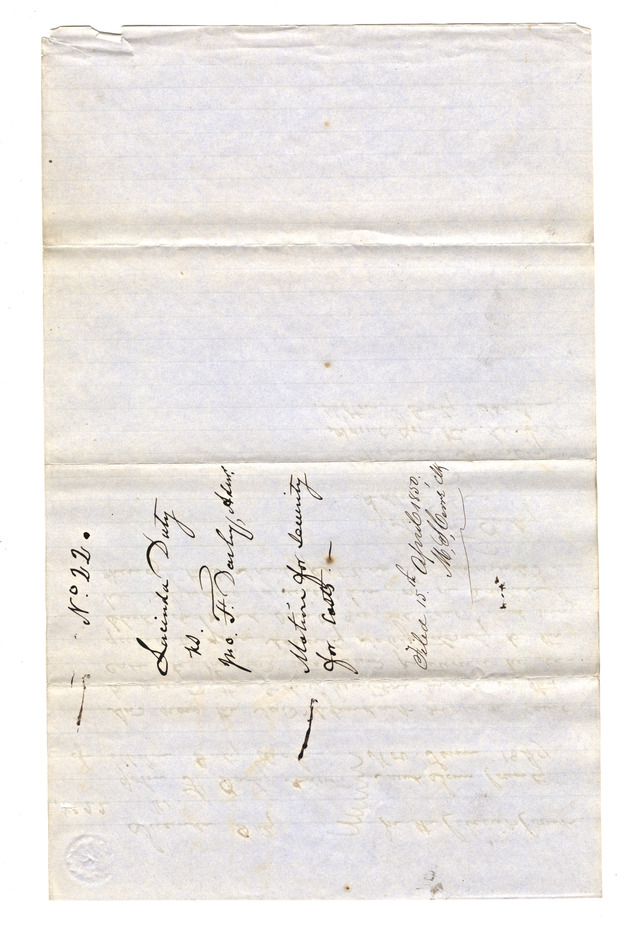 No. 22.
Lucinda Duty
vs.
Jno. F. Darby, Adm.
Motion for Security
for Costs. —
Filed 15th April 1850,
Clk